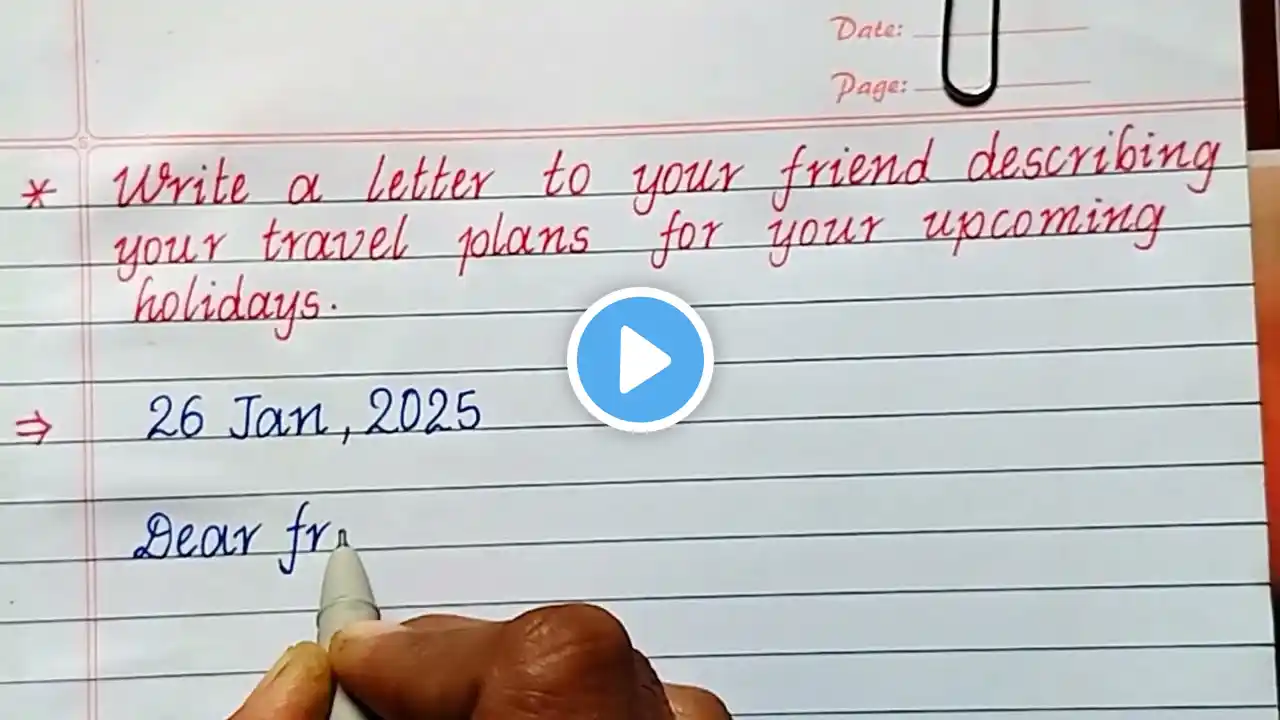 Date:
Page:
* Write a letter to your friend describing
your travel plans for your upcoming
holidays.
⇒ 26 Jan, 2025
Dear fr